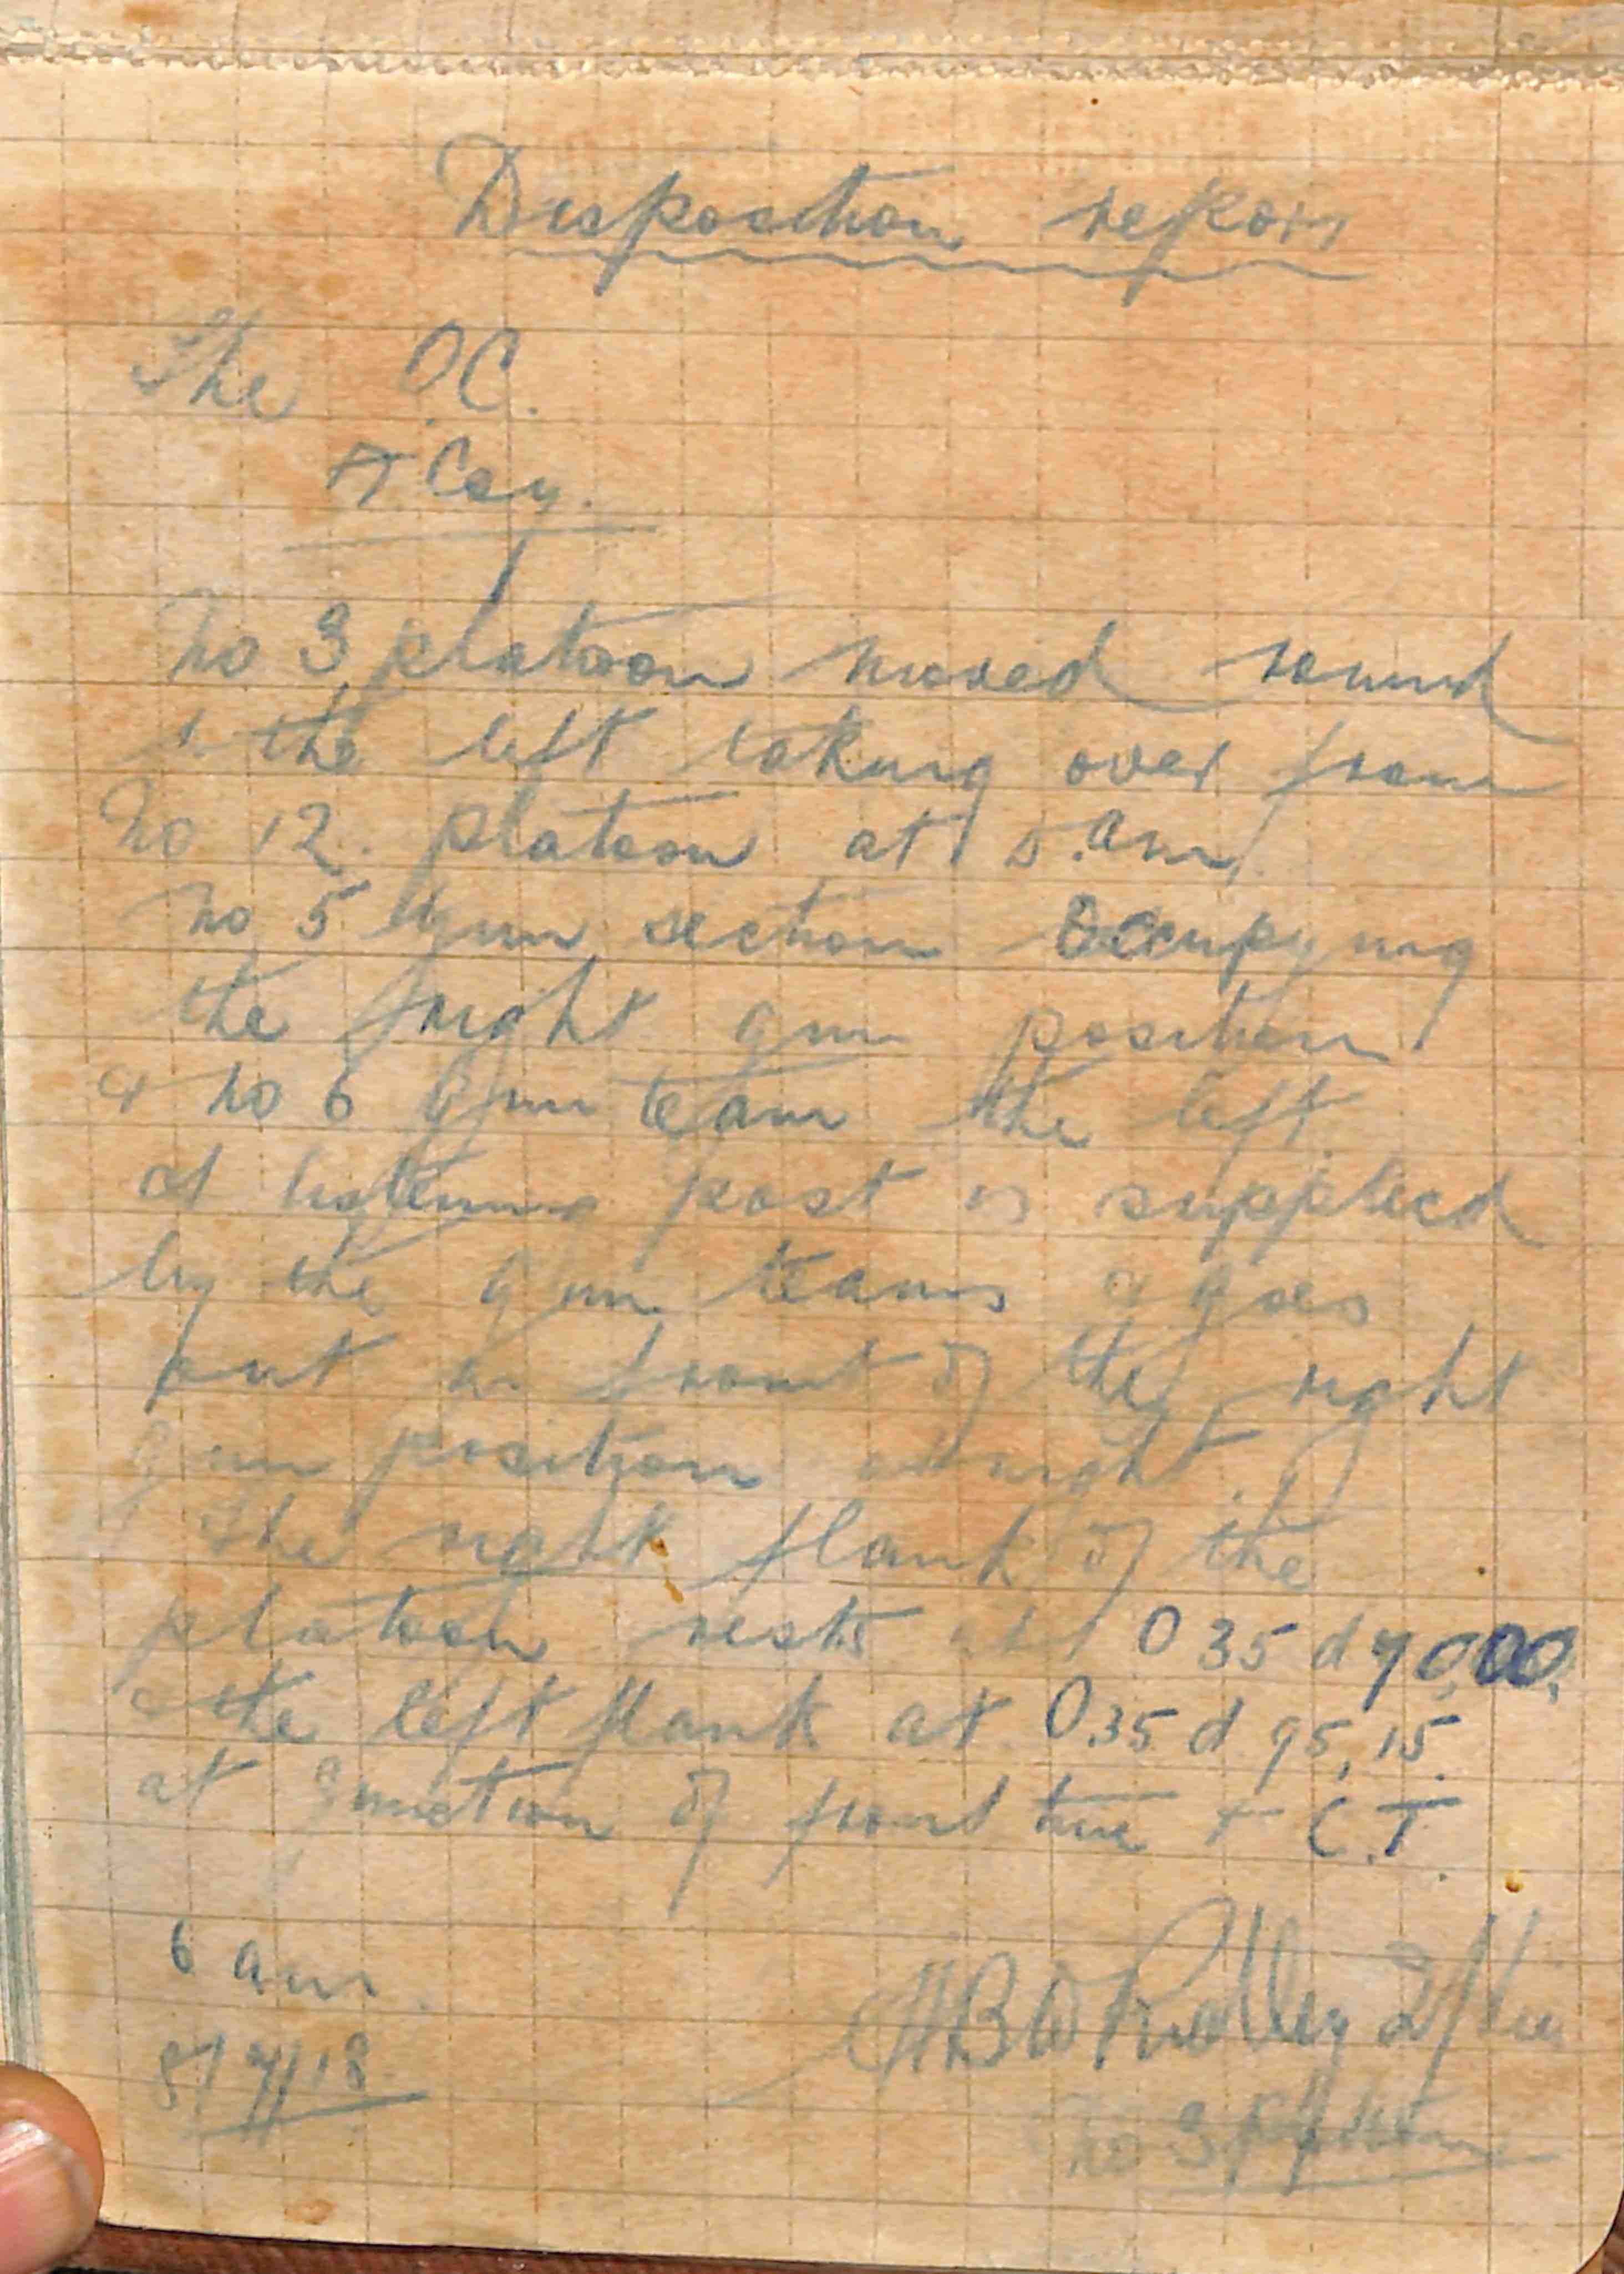 Disposition report
The O.C.
A. Coy.
No 3 platoon moved round
to the left taking over from
No 12. platoon at 5.am.
No 5 gun section occupying
the right gun position
& No 6 gun team the left.
A listening post is supplied
by the gun teams & goes
out in front of the right
gun position at night.
The right flank of the
platoon rests at O 35 d 70,00,
& the left flank at O.35 d 95,15.
at junction of front line & C.T.
6 am.
5/7/18.
2/Lieu
No 3 platoon